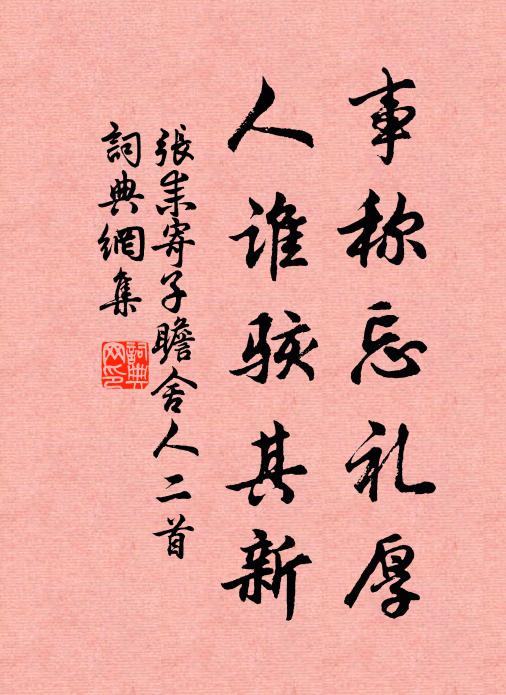 事称忘礼厚
人谁骇其新
張耒寄子瞻舍人二首
詞典網集
詞典网印